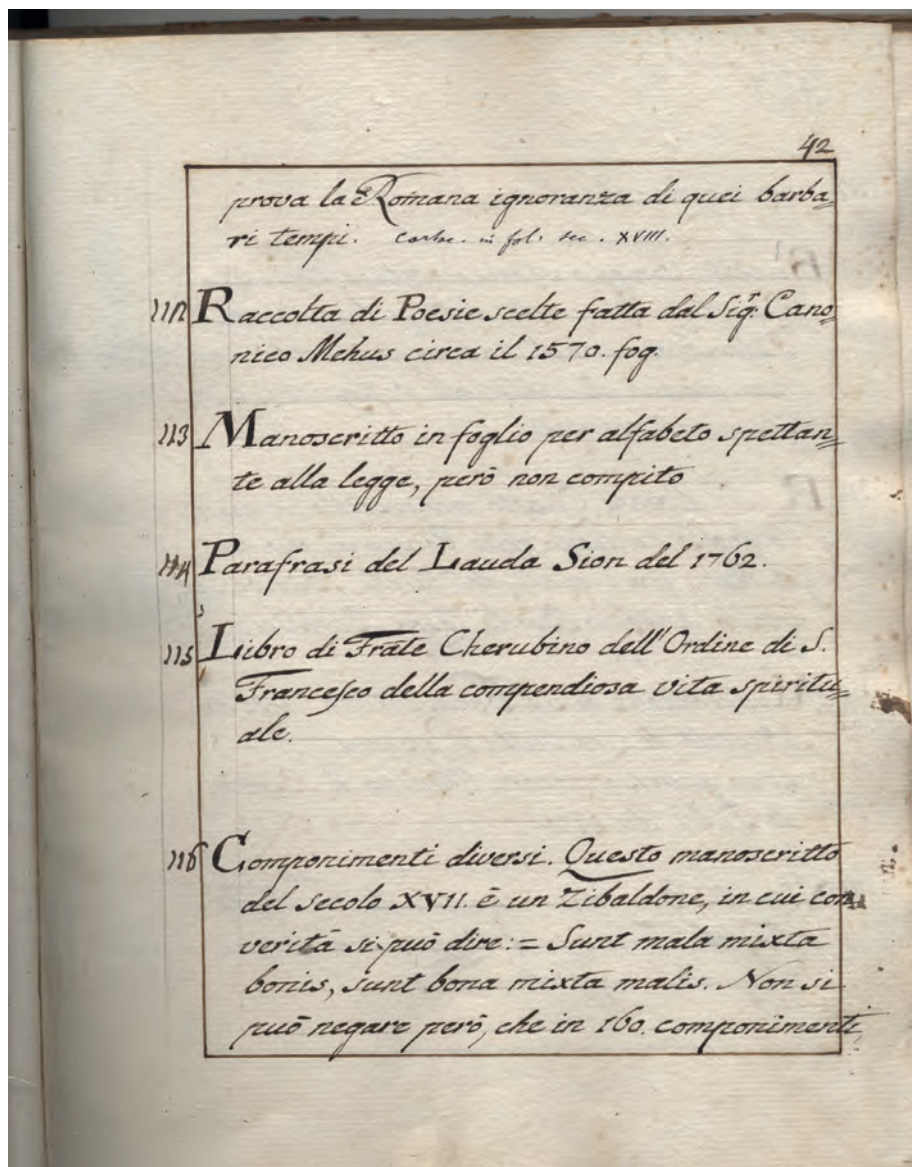 42
prova la Romana ignoranza di quei barba=
ri tempi. cartac. in fol. sec. XVIII.
112 Raccolta di Poesie scelte fatta dal Sigr: Cano=
nico Mehus circa il 1570. fog.
113 Manoscritto in foglio per alfabeto spettan=
te alla legge, però non compito
114 Parafrasi del Lauda Sion del 1762.
115 Libro di Frate Cherubino dell'Ordine di S.
Francesco della compendiosa vita spiritu=
ale.
116 Componimenti diversi. Questo manoscritto
del secolo XVII. è un Zibaldone, in cui con
verità si può dire: = Sunt mala mixta
bonis, sunt bona mixta malis. Non si
può negare però, che in 160. componimenti,